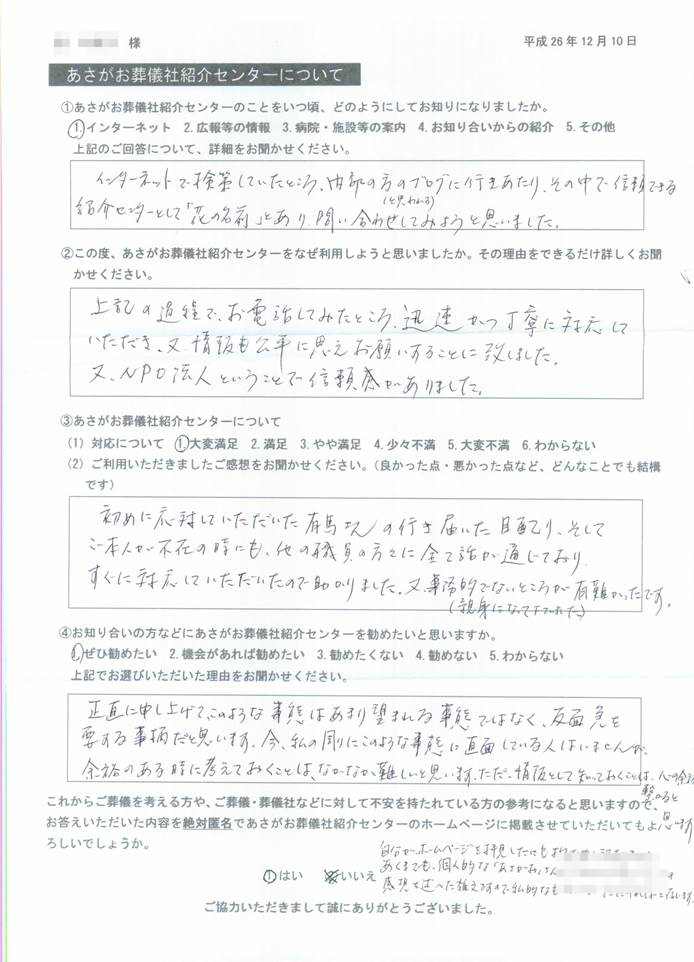 様
平成26年12月10日
あさがお葬儀社紹介センターについて
①あさがお葬儀社紹介センターのことをいつ頃、どのようにしてお知りになりましたか。
1.インターネット 2.広報等の情報 3.病院・施設等の案内 4.お知り合いからの紹介 5.その他
上記のご回答について、詳細をお聞かせください。
インターネットで検索していたところ、内部の方のブログに行きあたり、その中で信頼できる
(と思われる)
紹介センターとして「花の名前」とあり、問い合わせしてみようと思いました。
②この度、あさがお葬儀社紹介センターをなぜ利用しようと思いましたか。その理由をできるだけ詳しくお聞
かせください。
上記の過程で、お電話してみたところ、迅速かつ丁寧に対応して
いただき、又情報も公平に思えお願いすることに致しました。
又、NPO法人ということで信頼感がありました。
③あさがお葬儀社紹介センターについて
(1) 対応について 1.大変満足 2.満足 3.やや満足 4.少々不満 5.大変不満 6.わからない
(2) ご利用いただきましたご感想をお聞かせください。(良かった点・悪かった点など、どんなことでも結構
です)
初めに応対していただいた有馬さんの行き届いた目配り、そして
ご本人が不在の時にも、他の職員の方々に全て話が通じており
すぐに対応していただいたので助かりました。又、事務的でないところが有難かったです。
(親身になって下さった)
④お知り合いの方などにあさがお葬儀社紹介センターを勧めたいと思いますか。
1.ぜひ勧めたい 2.機会があれば勧めたい 3.勧めたくない 4.勧めない 5.わからない
上記でお選びいただいた理由をお聞かせください。
正直に申し上げて、このような事態はあまり望まれる事態ではなく、反面急を
要する事柄だと思います。今、私の周りにこのような事態に直面している人はいませんが、
余裕のある時に考えておくことは、なかなか難しいと思います。ただ、情報として知っておくことは、心の余裕
繋がると
思います
これからご葬儀を考える方や、ご葬儀・葬儀社などに対して不安を持たれている方の参考になると思いますので、
お答えいただいた内容を絶対匿名であさがお葬儀社紹介センターのホームページに掲載させていただいてもよ
ろしいでしょうか。
1.はい 2.いいえ
自分がホームページを拝見した
あくまでも、個人的な
感想を述べた
ご協力いただきまして誠にありがとうございました。